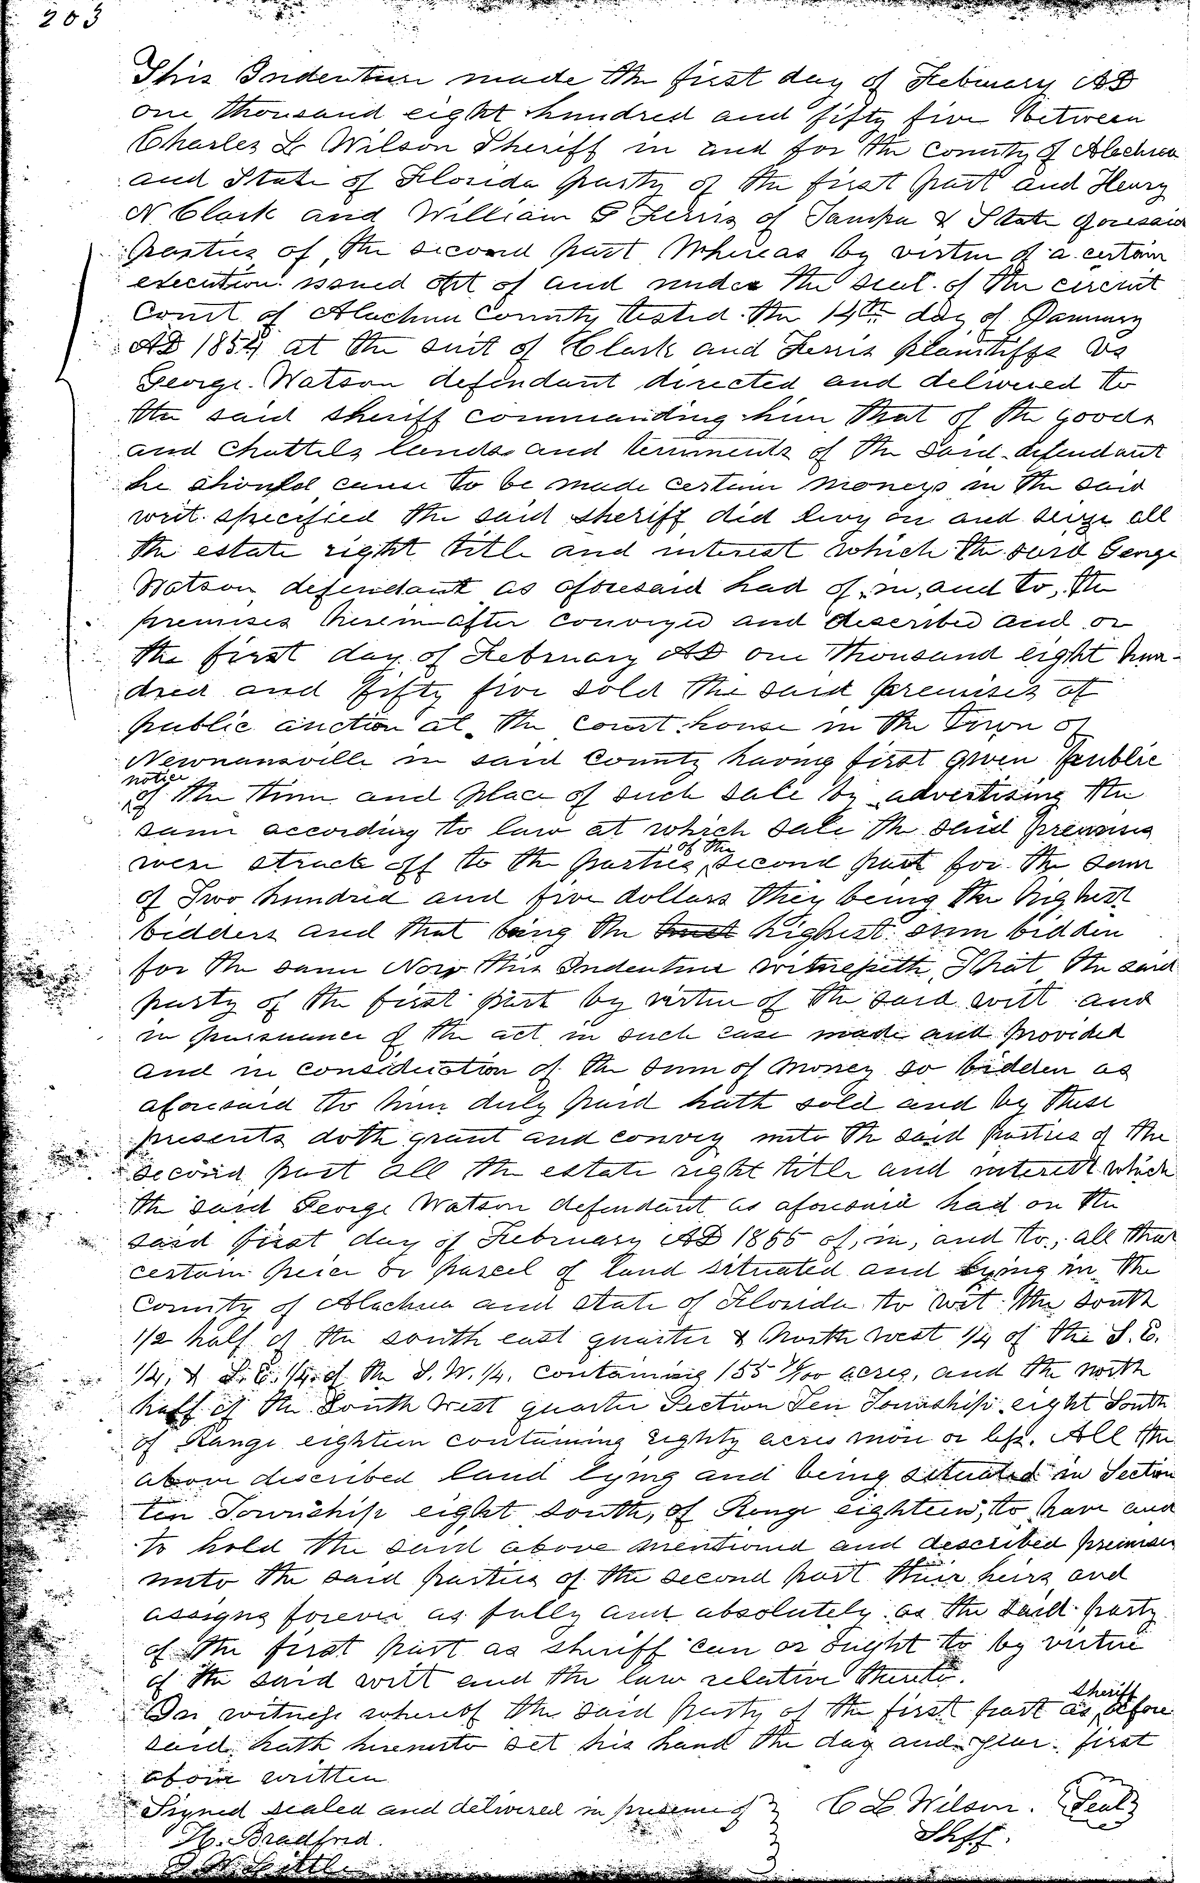 203
This Indenture made the first day of February AD
one thousand eight hundred and fifty five between
Charles L Wilson Sheriff in and for the county of Alachua
and State of Florida party of the first part and Henry
N Clark and William G Ferris of Tampa & State aforesaid
parties of the second part Whereas by virtue of a certain
execution issued out of and under the seal of the circuit
Court of Alachua County tested the 14th day of January
AD 1854 at the suit of Clark and Ferris plaintiffs vs
George Watson defendant directed and delivered to
the said sheriff commanding him that of the goods
and chattels lands and tenements of the said defendant
he should cause to be made certain moneys in the said
writ specified the said sheriff did levy on and seize all
the estate right title and interest which the said George
Watson defendant as aforesaid had of, in, and to, the
premises hereinafter conveyed and described and on
the first day of February AD one thousand eight hun-
dred and fifty five sold the said premises at
public auction at the court house in the Town of
Newnansville in said County having first given public
notice
of the time and place of such sale by advertising the
same according to law at which sale the said premises
were struck off to the parties of the second part for the sum
of Two hundred and five dollars they being the highest
bidders and that being the highest sum bidden
for the same Now this Indenture witnesseth, That the said
party of the first part by virtue of the said writ and
in pursuance of the act in such case made and provided
and in consideration of the sum of money so bidden as
aforesaid to him duly paid hath sold and by these
presents doth grant and convey unto the said parties of the
second part all the estate right title and interest which
the said George Watson defendant as aforesaid had on the
said first day of February AD 1855 of, in, and to, all that
certain peice or parcel of land situated and lying in the
County of Alachua and state of Florida to wit: the south
1/2 half of the south east quarter & North west 1/4 of the S. E.
1/4, & S. E. 1/4 of the S. W. 1/4, containing 155 /100 acres, and the north
half of the South West quarter Section Ten Township eight South
of Range eighteen containing eighty acres more or less. All the
above described land lying and being situated in Section
ten Township eight south, of Range eighteen, to have and
to hold the said above mentioned and described premises
unto the said parties of the second part their heirs and
assigns forever as fully and absolutely as the said party
of the first part as sheriff can or ought to by virtue
of the said writ and the law relative thereto.
In witness whereof the said party of the first part as sheriff afore
said hath hereunto set his hand the day and year first
above written
Signed sealed and delivered in presence of } C L Wilson. (Seal)
H. Bradford. Shff.
J W Little